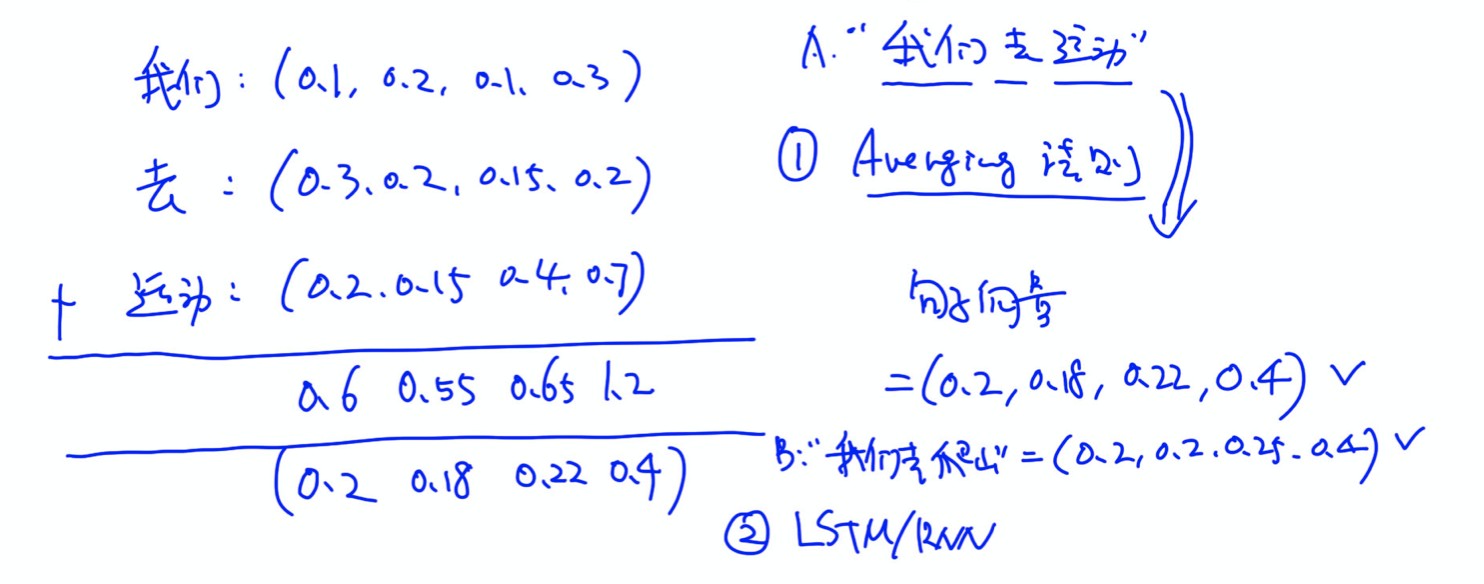 我们: (0.1, 0.2, 0.1, 0.3)
去 : (0.3、0.2, 0.15、0.2)
+ 运动: (0.2、0.15 0.4、0.7)
0.6 0.55 0.65 1.2
(0.2 0.18 0.22 0.4)
A. "我们去运动"
① Averging 法则
句子向量
=(0.2, 0.18, 0.22, 0.4) ✓
B: "我们去爬山" = (0.2, 0.2、0.25、0.4) ✓
② LSTM/RNN